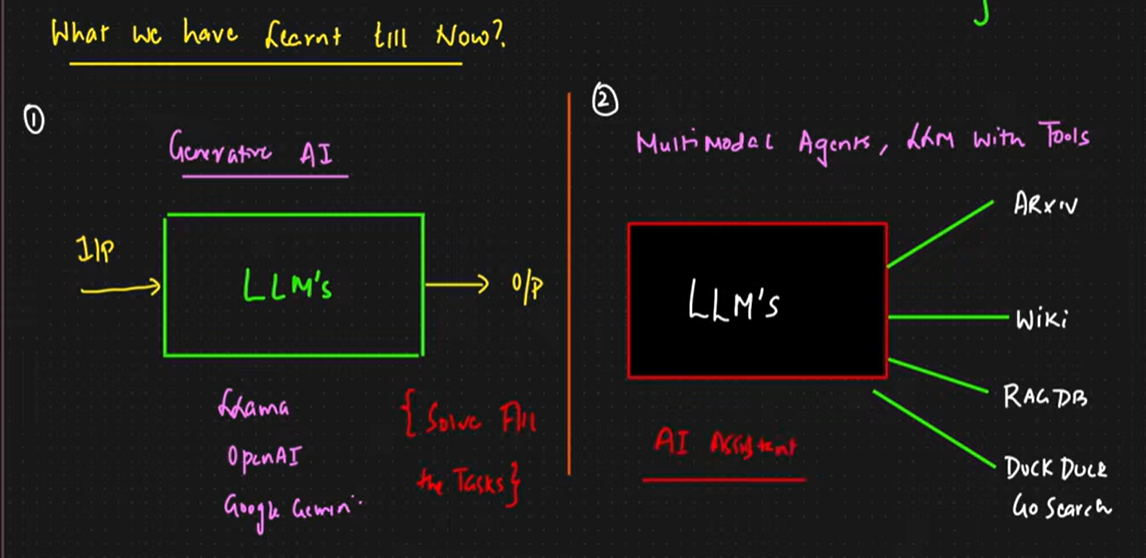 What we have Learnt till Now?
①
Generative AI
I/P
LLM's
O/P
Llama
OpenAI
Google Gemini
{Solve All
the Tasks}
②
Multimodal Agents, LLM with Tools
LLM's
ARXIV
Wiki
RAG DB
DUCK DUCK
Go Search
AI Assistant